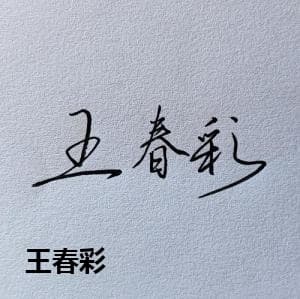 王春彩
王春彩